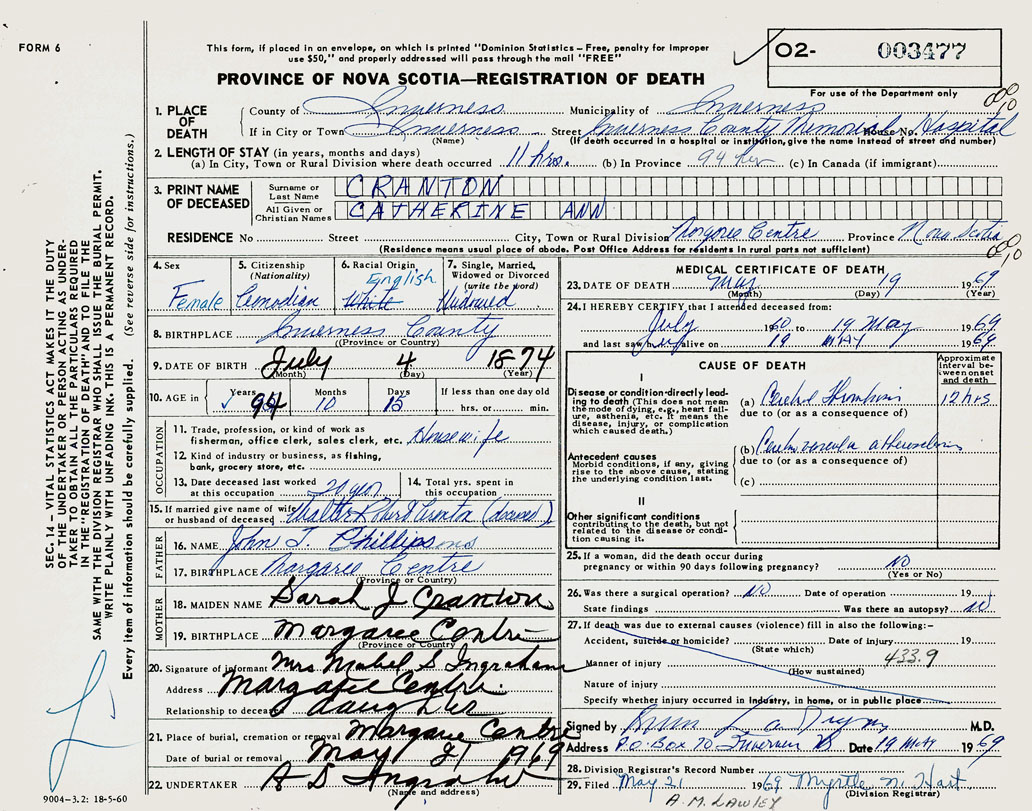 FORM 6
This form, if placed in an envelope, on which is printed "Dominion Statistics – Free, penalty for improper
use $50," and properly addressed will pass through the mail "FREE"
PROVINCE OF NOVA SCOTIA—REGISTRATION OF DEATH
O2- 003477
For use of the Department only
1. PLACE OF DEATH
County of Inverness Municipality of Inverness
If in City or Town Inverness Street Inverness County Memorial House No. Hospital
(Name) (If death occurred in a hospital or institution, give the name instead of street and number)
2. LENGTH OF STAY (in years, months and days)
(a) In City, Town or Rural Division where death occurred 11 hrs. (b) In Province 94 (c) In Canada (if immigrant)
3. PRINT NAME OF DECEASED
Surname or Last Name CRANTON
All Given or Christian Names CATHERINE ANN
RESIDENCE No Street City, Town or Rural Division Margaree Centre Province Nova Scotia
(Residence means usual place of abode. Post Office Address for residents in rural parts not sufficient)
4. Sex 5. Citizenship (Nationality) 6. Racial Origin 7. Single, Married, Widowed or Divorced (write the word)
English
Female Canadian White Widowed
8. BIRTHPLACE Inverness County
(Province or Country)
9. DATE OF BIRTH July 4 1874
(Month) (Day) (Year)
10. AGE in Years 94 Months 10 Days 15 If less than one day old
hrs. or min.
OCCUPATION
11. Trade, profession, or kind of work as
fisherman, office clerk, sales clerk, etc. Housewife
12. Kind of industry or business, as fishing,
bank, grocery store, etc.
13. Date deceased last worked at this occupation 20 14. Total yrs. spent in this occupation
15. If married give name of wife or husband of deceased Walter Robert Cranton (deceased)
FATHER
16. NAME John T. Phillips
17. BIRTHPLACE Margaree Centre
(Province or Country)
MOTHER
18. MAIDEN NAME Sarah J Cranton
19. BIRTHPLACE Margaree Centre
(Province or Country)
20. Signature of informant Mrs Mabel S Ingraham
Address Margaree Centre
Relationship to deceased daughter
21. Place of burial, cremation or removal Margaree Centre
Date of burial or removal May 21 1969
22. UNDERTAKER A S Ingraham
(Name and address)
MEDICAL CERTIFICATE OF DEATH
23. DATE OF DEATH May 19 1969
(Month) (Day) (Year)
24. I HEREBY CERTIFY that I attended deceased from:
July 1960 to 19 May 1969
and last saw alive on 19 MAY 1969
CAUSE OF DEATH
Approximate interval between onset and death
I
Disease or condition directly leading to death (This does not mean the mode of dying, e.g., heart failure, asthenia, etc. It means the disease, injury, or complication which caused death.)
(a) Cerebral Thrombosis 12 hrs
due to (or as a consequence of)
Antecedent causes
Morbid conditions, if any, giving rise to the above cause, stating the underlying condition last.
(b) Cerebrovascular atherosclerosis
due to (or as a consequence of)
(c)
II
Other significant conditions
contributing to the death, but not related to the disease or condition causing it.
25. If a woman, did the death occur during
pregnancy or within 90 days following pregnancy? NO
(Yes or No)
26. Was there a surgical operation? NO Date of operation 19
State findings Was there an autopsy? NO
27. If death was due to external causes (violence) fill in also the following:-
Accident, suicide or homicide? Date of injury 19
(State which)
Manner of injury 433.9
(How sustained)
Nature of injury
Specify whether injury occurred in industry, in home, or in public place
Signed by M.D.
Address P.O. Box 70 Inverness Date 19 MAY 1969
28. Division Registrar's Record Number
29. Filed May 21 1969 Myrtle N. Hart
(Division Registrar)
A.M. LAWLEY
SEC. 14 – VITAL STATISTICS ACT MAKES IT THE DUTY
OF THE UNDERTAKER OR PERSON ACTING AS UNDER-
TAKER TO OBTAIN ALL THE PARTICULARS REQUIRED
IN THE "REGISTRATION OF DEATH" AND TO FILE THE
SAME WITH THE DIVISION REGISTRAR WHO SHALL ISSUE THE BURIAL PERMIT.
WRITE PLAINLY WITH UNFADING INK. THIS IS A PERMANENT RECORD.
Every item of information should be carefully supplied. (See reverse side for instructions.)
9004-3.2: 18-5-60